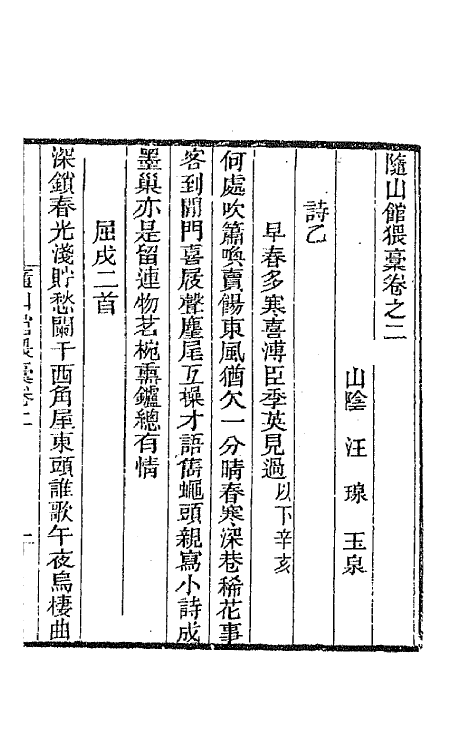 隨山館猥稾卷之二
山陰　汪　瑔　玉泉
詩乙
早春多寒喜溥臣季英見過以下辛亥
何處吹簫喚賣餳東風猶欠一分晴春寒深巷稀花事
客到開門喜屐聲麈尾互操才語雋蠅頭親寫小詩成
墨巢亦是留連物茗椀熏鑪總有情
屈戌二首
深鎖春光淺貯愁闌干西角屋東頭誰歌午夜烏棲曲